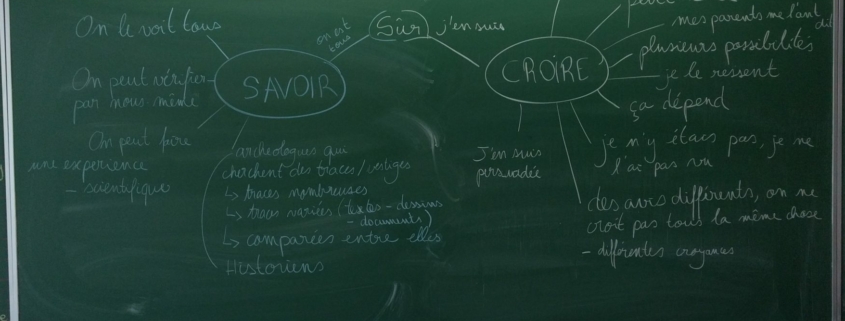 On le voit tous
SAVOIR
on est
tous
Sûr
j'en suis
CROIRE
On peut vérifier
par nous même
On peut faire
une experience
- scientifique
archeologues qui
cherchent des traces / vestiges
↳ traces nombreuses
↳ traces variées (textes - dessins
- documents)
↳ comparées entre elles
Historiens
mes parents me l'ont dit
plusieurs possibilités
je le ressent
ça dépend
je n'y étais pas, je ne
l'ai pas vu
J'en suis
persuadée
des avis différents, on ne
croit pas tous la même chose
- différentes croyances